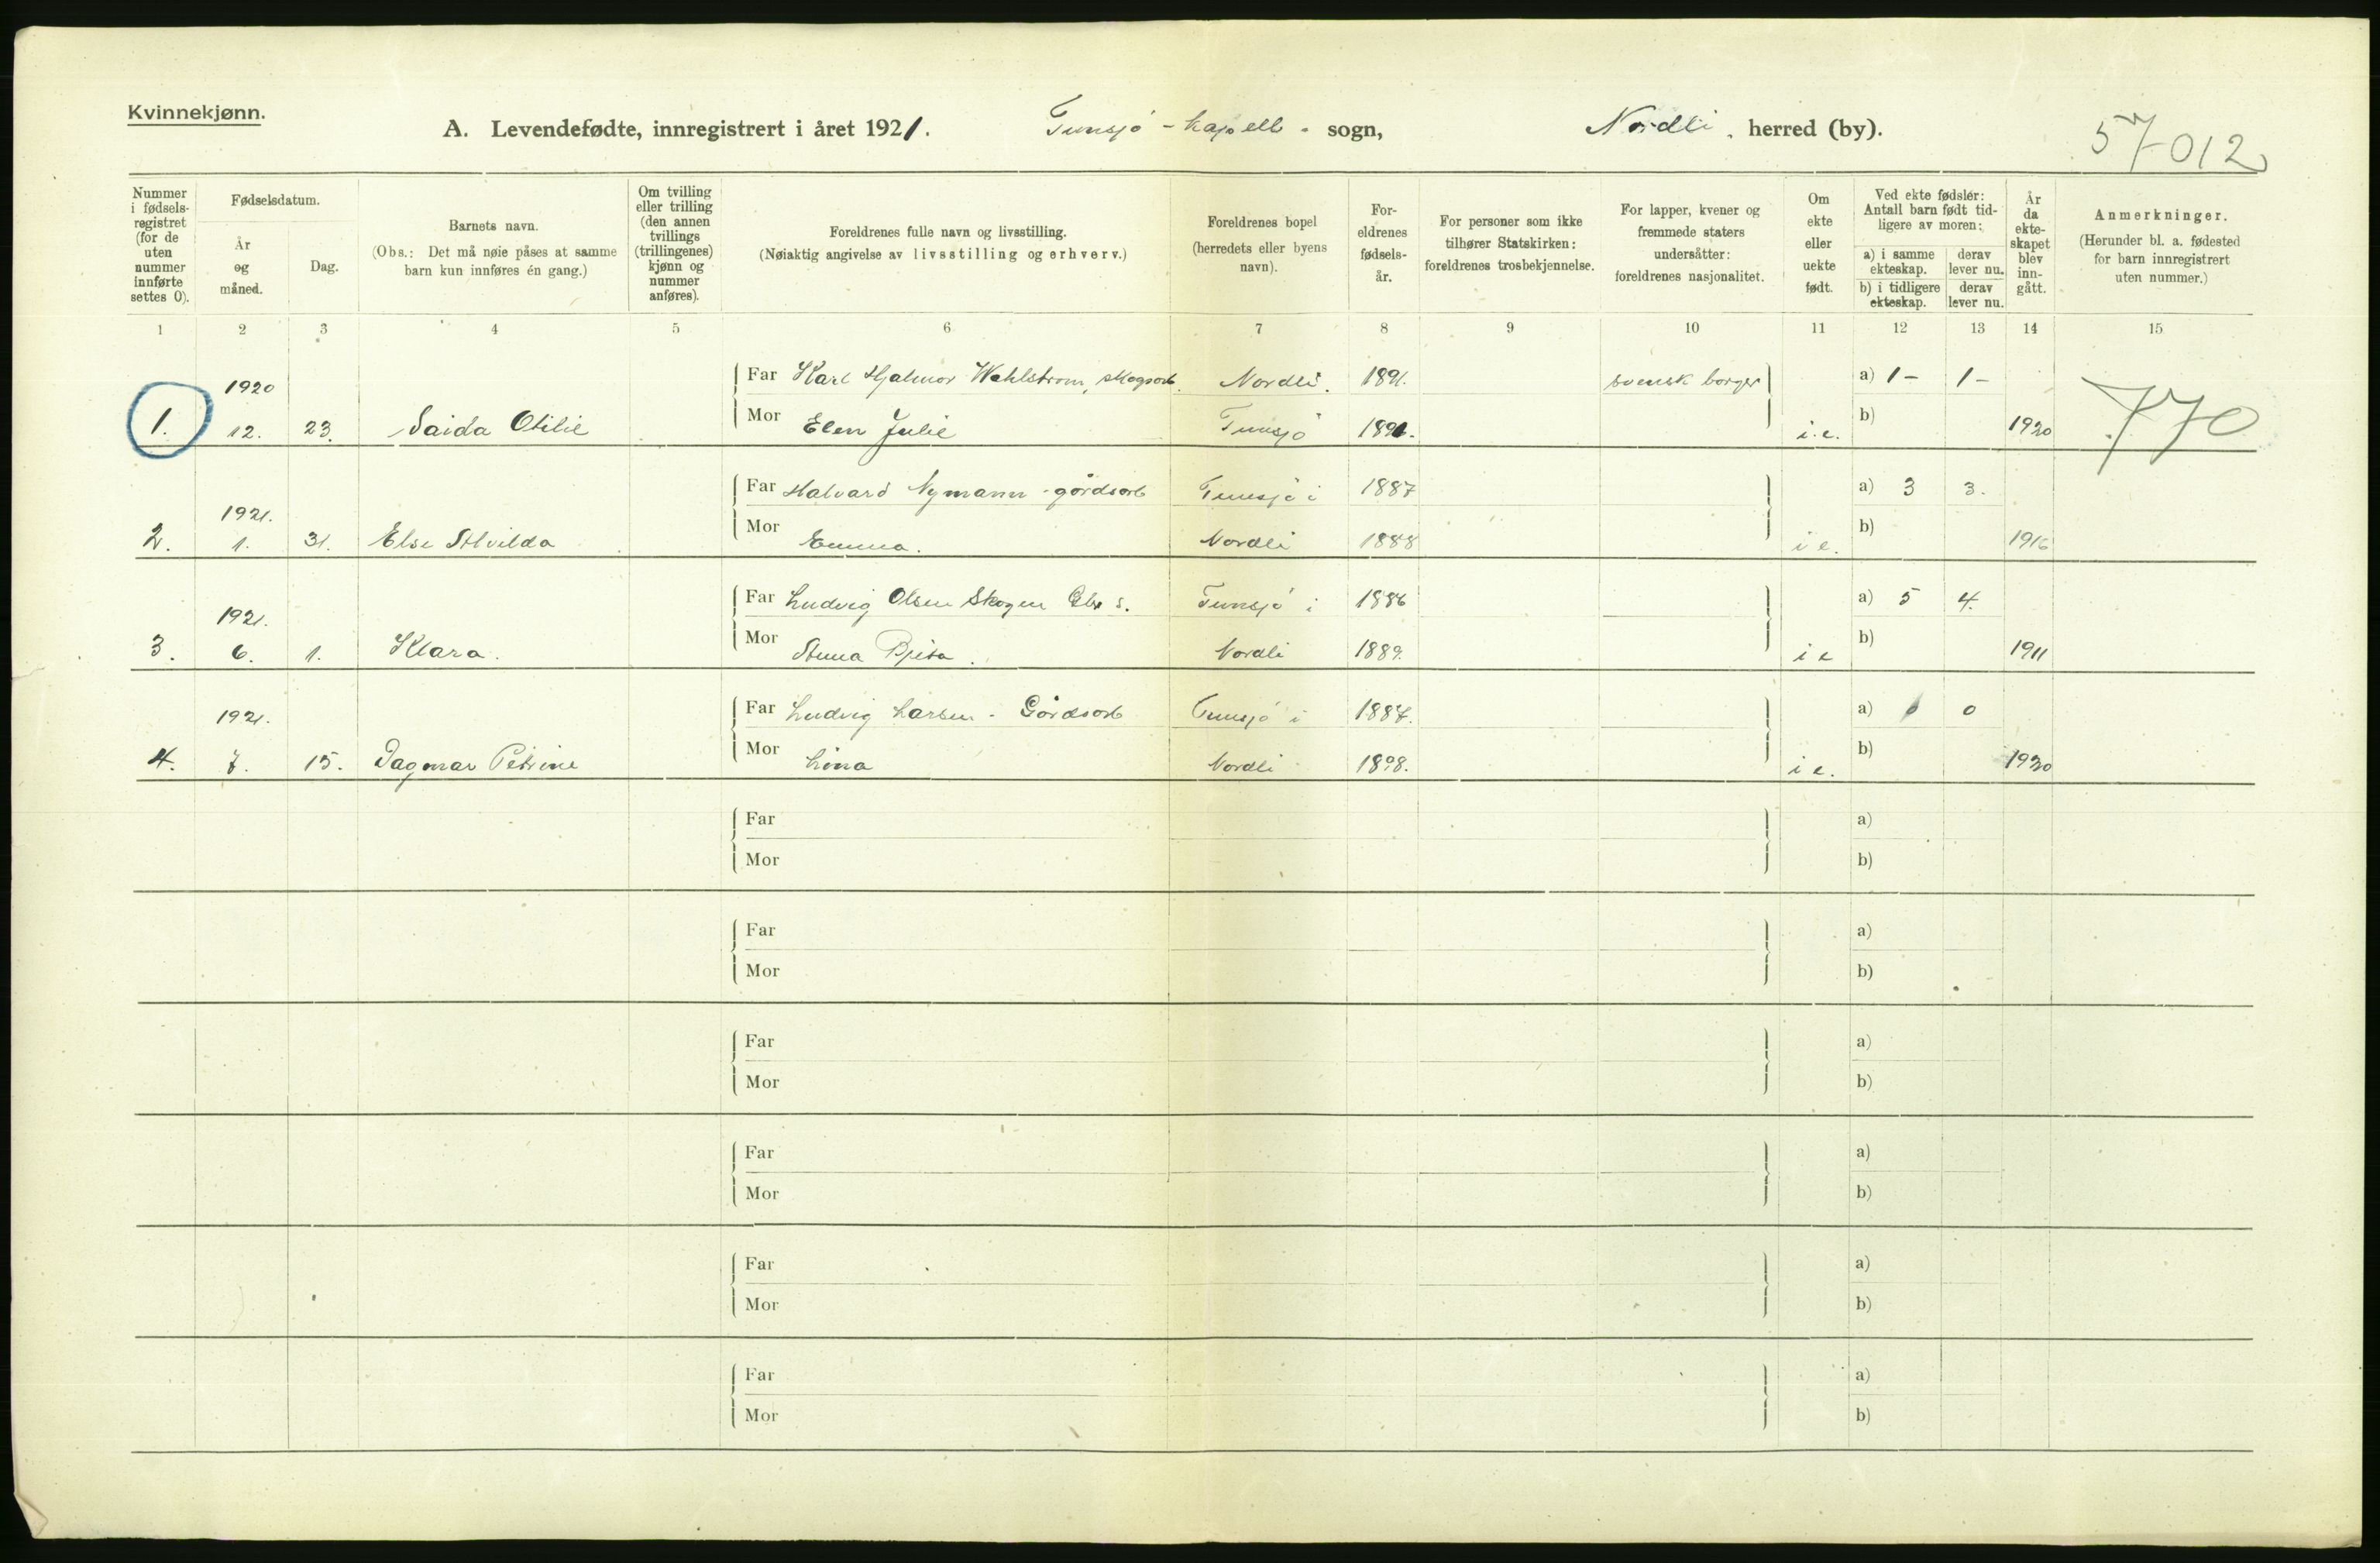 Kvinnekjønn.
A. Levendefødte, innregistrert i året 1921. Tunsjø - kapell - sogn, Nordli. herred (by).
57012
Nummer i fødsels-registret (for de uten nummer innførte settes 0).
Fødselsdatum.
År og måned.
Dag.
Barnets navn.
(Obs.: Det må nøie påses at samme barn kun innføres én gang.)
Om tvilling eller trilling (den annen tvillings (trillingenes) kjønn og nummer anføres).
Foreldrenes fulle navn og livsstilling.
(Nøiaktig angivelse av livsstilling og erhverv.)
Foreldrenes bopel (herredets eller byens navn).
For-eldrenes fødsels-år.
For personer som ikke tilhører Statskirken: foreldrenes trosbekjennelse.
For lapper, kvener og fremmede staters undersåtter: foreldrenes nasjonalitet.
Om ekte eller uekte født.
Ved ekte fødsler: Antall barn født tid-ligere av moren:
a) i samme ekteskap. derav lever nu.
b) i tidligere ekteskap. derav lever nu.
År da ekte-skapet blev inn-gått.
Anmerkninger.
(Herunder bl. a. fødested for barn innregistrert uten nummer.)
1 2 3 4 5 6 7 8 9 10 11 12 13 14 15
1920 Far Karl Hjalmar Wahlstrøm, skogsarb. Nordli. 1891. svensk borger a) 1 - 1 -
1. 12. 23. Saida Otilie Mor Elen Julie Tunsjø i.e. b) 1920
770
1921. Far Halvard Nymann - gårdsarb Tunsjø i 1887 a) 3 3.
2. 1. 31. Else Alvilda Mor Emma. Nordli 1888 i e. b) 1916
1921. Far Ludvig Olsen Skogen Gbr s. Tunsjø i 1886 a) 5 4.
3. 6. 1. Klara. Mor Anna Nordli 1889. i e b) 1911
1921. Far Ludvig Larsen - Gårdsarb Tunsjø i a) 0 0
4. 7. 15. Dagmar Petrine Mor Lina Nordli 1898. i e. b) 1920
Far a)
Mor b)
Far a)
Mor b)
Far a)
Mor b)
Far a)
Mor b)
Far a)
Mor b)
Far a)
Mor b)